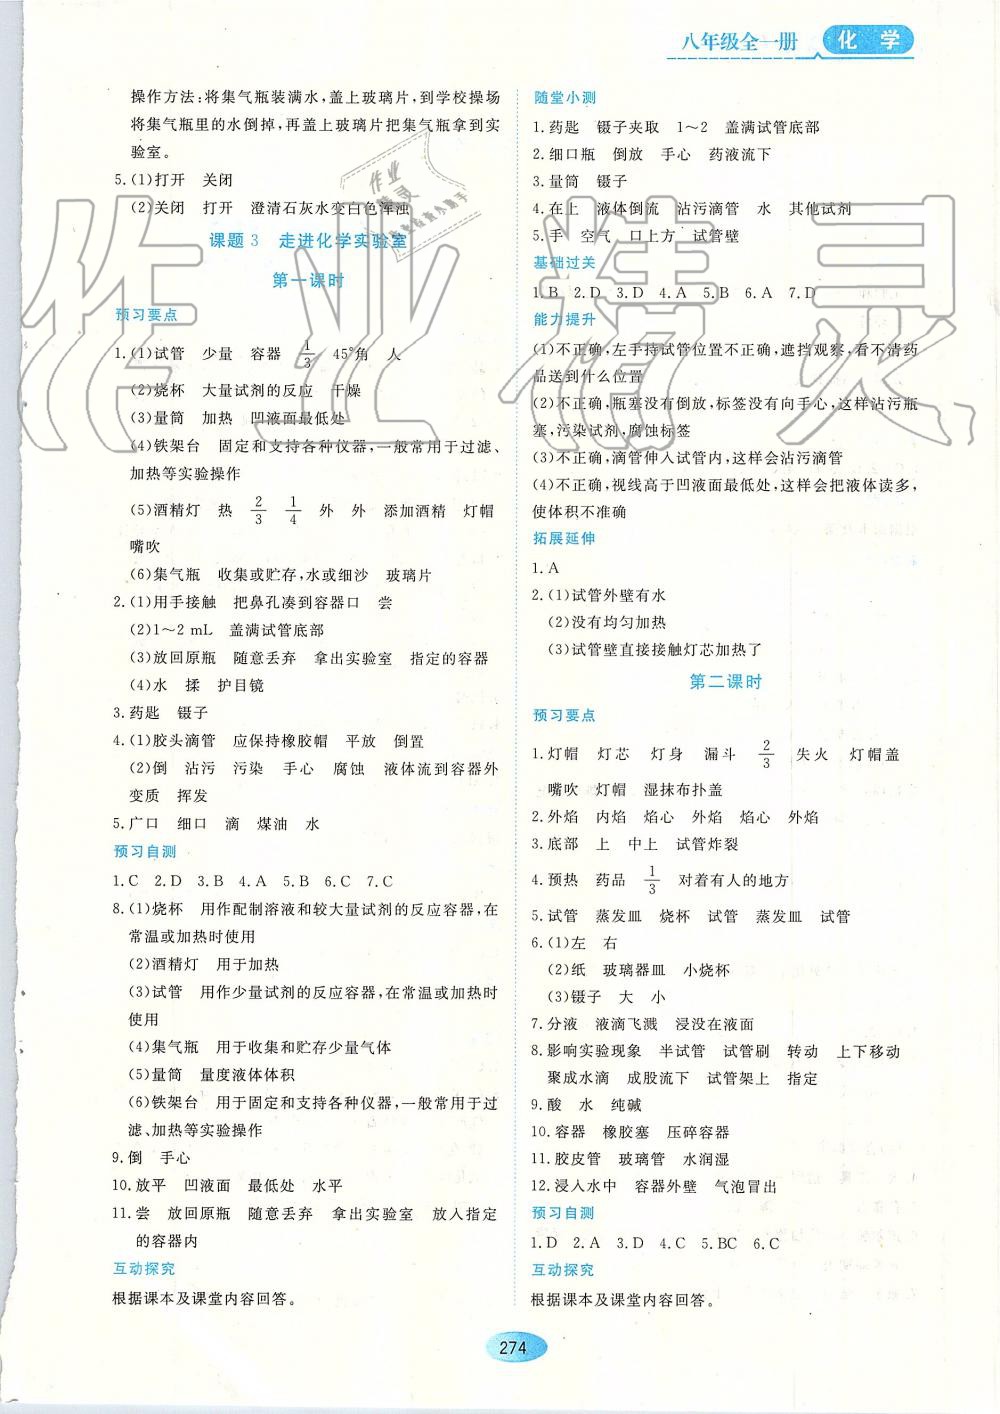 八年级全一册 化学
操作方法:将集气瓶装满水,盖上玻璃片,到学校操场
将集气瓶里的水倒掉,再盖上玻璃片把集气瓶拿到实
验室。
5.(1)打开 关闭
(2)关闭 打开 澄清石灰水变白色浑浊
课题3 走进化学实验室
第一课时
预习要点
1.(1)试管 少量 容器 1/3 45°角 人
(2)烧杯 大量试剂的反应 干燥
(3)量筒 加热 凹液面最低处
(4)铁架台 固定和支持各种仪器,一般常用于过滤、
加热等实验操作
(5)酒精灯 热 2/3 1/4 外 外 添加酒精 灯帽
嘴吹
(6)集气瓶 收集或贮存,水或细沙 玻璃片
2.(1)用手接触 把鼻孔凑到容器口 尝
(2)1～2 mL 盖满试管底部
(3)放回原瓶 随意丢弃 拿出实验室 指定的容器
(4)水 揉 护目镜
3.药匙 镊子
4.(1)胶头滴管 应保持橡胶帽 平放 倒置
(2)倒 沾污 污染 手心 腐蚀 液体流到容器外
变质 挥发
5.广口 细口 滴 煤油 水
预习自测
1.C 2.D 3.B 4.A 5.B 6.C 7.C
8.(1)烧杯 用作配制溶液和较大量试剂的反应容器,在
常温或加热时使用
(2)酒精灯 用于加热
(3)试管 用作少量试剂的反应容器,在常温或加热时
使用
(4)集气瓶 用于收集和贮存少量气体
(5)量筒 量度液体体积
(6)铁架台 用于固定和支持各种仪器,一般常用于过
滤、加热等实验操作
9.倒 手心
10.放平 凹液面 最低处 水平
11.尝 放回原瓶 随意丢弃 拿出实验室 放入指定
的容器内
互动探究
根据课本及课堂内容回答。
随堂小测
1.药匙 镊子夹取 1～2 盖满试管底部
2.细口瓶 倒放 手心 药液流下
3.量筒 镊子
4.在上 液体倒流 沾污滴管 水 其他试剂
5.手 空气 口上方 试管壁
基础过关
1.B 2.D 3.D 4.A 5.B 6.A 7.D
能力提升
(1)不正确,左手持试管位置不正确,遮挡观察,看不清药
品送到什么位置
(2)不正确,瓶塞没有倒放,标签没有向手心,这样沾污瓶
塞,污染试剂,腐蚀标签
(3)不正确,滴管伸入试管内,这样会沾污滴管
(4)不正确,视线高于凹液面最低处,这样会把液体读多,
使体积不准确
拓展延伸
1.A
2.(1)试管外壁有水
(2)没有均匀加热
(3)试管壁直接接触灯芯加热了
第二课时
预习要点
1.灯帽 灯芯 灯身 漏斗 2/3 失火 灯帽盖
嘴吹 灯帽 湿抹布扑盖
2.外焰 内焰 焰心 外焰 焰心 外焰
3.底部 上 中上 试管炸裂
4.预热 药品 1/3 对着有人的地方
5.试管 蒸发皿 烧杯 试管 蒸发皿 试管
6.(1)左 右
(2)纸 玻璃器皿 小烧杯
(3)镊子 大 小
7.分液 液滴飞溅 浸没在液面
8.影响实验现象 半试管 试管刷 转动 上下移动
聚成水滴 成股流下 试管架上 指定
9.酸 水 纯碱
10.容器 橡胶塞 压碎容器
11.胶皮管 玻璃管 水润湿
12.浸入水中 容器外壁 气泡冒出
预习自测
1.D 2.A 3.D 4.C 5.BC 6.C
互动探究
根据课本及课堂内容回答。
274
作业精灵